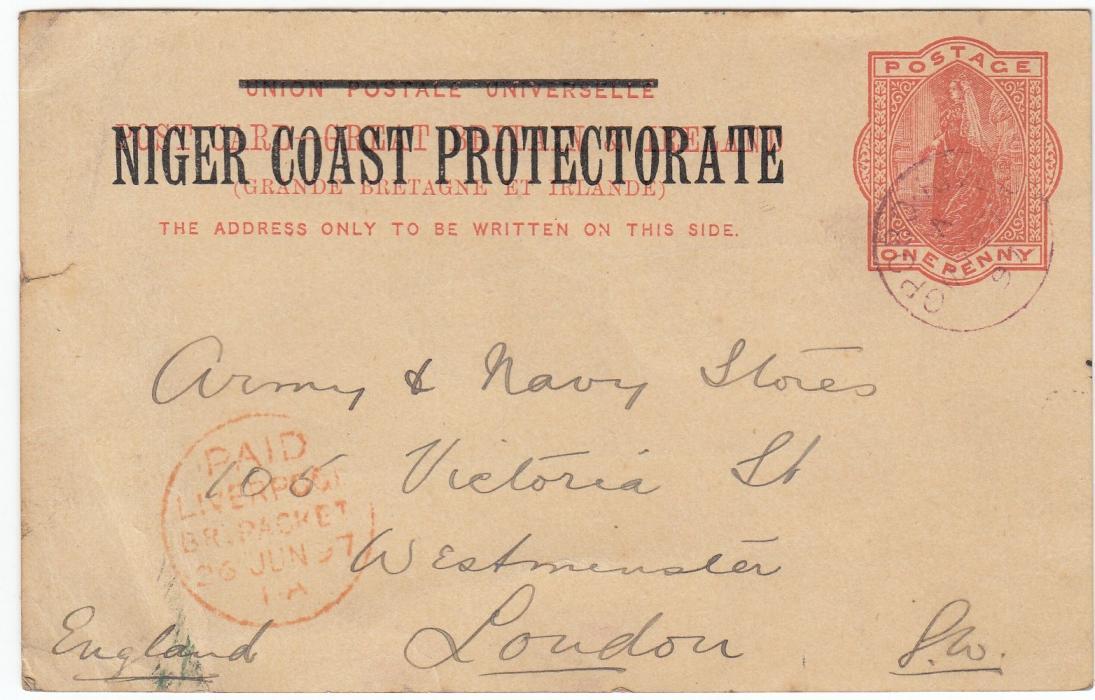 POSTAGE
UNION POSTALE UNIVERSELLE
POST CARD - GREAT BRITAIN & IRELAND
NIGER COAST PROTECTORATE
(GRANDE BRETAGNE ET IRLANDE)
THE ADDRESS ONLY TO BE WRITTEN ON THIS SIDE.
ONE PENNY
Army & Navy Stores
105 Victoria St
Westminster
London S.W.
England
PAID
LIVERPOOL
BR. PACKET
26 JUN 97
1.A